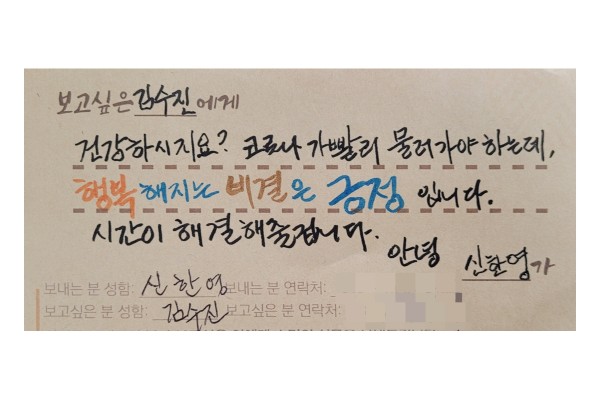 보고싶은 김수진에게
건강하시지요? 코로나가 빨리 물러가야 하는데,
행복해지는 비결은 긍정입니다.
시간이 해결해줄겁니다.
안녕 신한영가
보내는 분 성함: 신한영 보내는 분 연락처:
보고싶은 분 성함: 김수진 보고싶은 분 연락처: